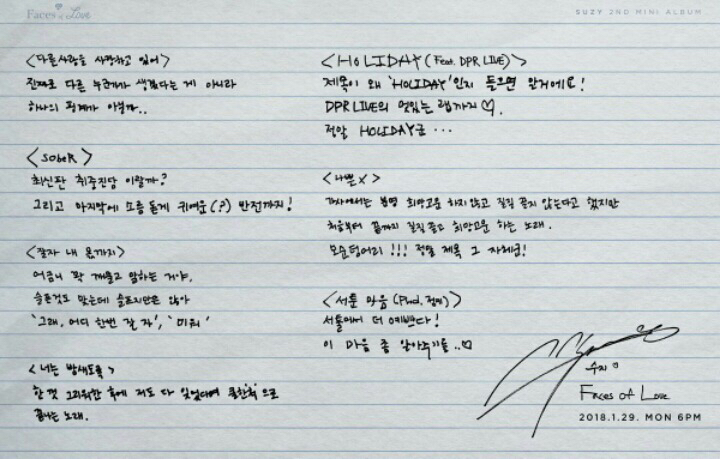 Faces of Love
SUZY 2ND MINI ALBUM
<다른사람을 사랑하고 있어>
진짜로 다른 누군가가 생겼다는 게 아니라
하나의 핑계가 아닐까..
<SObeR>
최신판 취중진담 이랄까?
그리고 마지막에 소름 돋게 귀여운(?) 반전까지!
<잘자 내 몫까지>
어금니 꽉 깨물고 말하는 거야.
슬픈것도 맞는데 슬프지만은 않아
'그래, 어디 한번 잘 자', '미워'
<너는 밤새도록>
한껏 그리워한 후에 저도 다 잊었다며 쿨한척으로
끝나는 노래.
<HOLIDAY (Feat. DPR LIVE)>
제목이 왜 'HOLIDAY'인지 들으면 알거에요!
DPR LIVE의 멋있는 랩까지♡.
정말 HOLIDAY군...
<나쁜X>
가사에서는 분명 희망고문 하지않고 질질 끌지 않는다고 했지만
처음부터 끝까지 질질 끌고 희망고문 하는 노래.
모순덩어리!!! 정말 제목 그 자체군!
<서툰 마음 (Prod. 정미)>
서툴에서 더 예쁘다!
이 마음 좀 알아주기를..♡
수지
Faces of Love
2018.1.29. MON 6PM